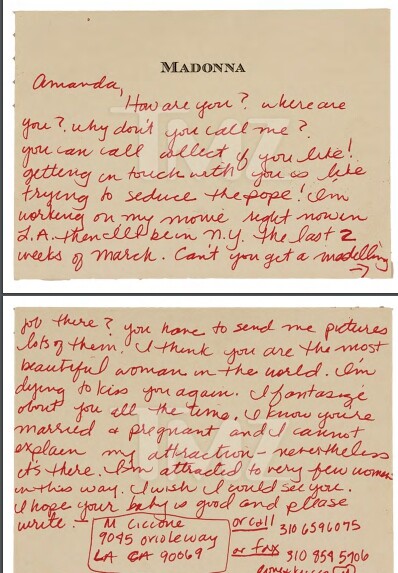 MADONNA
Amanda,
How are you? where are
you? why don't you call me?
you can call collect if you like!
getting in touch with you is like
trying to seduce the pope! I'm
working on my movie right now in
L.A. then I'll be in N.Y. the last 2
weeks of March. Can't you get a modelling
→
job there? you have to send me pictures
lots of them. I think you are the most
beautiful woman in the world. I'm
dying to kiss you again. I fantasize
about you all the time. I know you're
married & pregnant and I cannot
explain my attraction - nevertheless
it's there. I'm attracted to very few women
in this way. I wish I could see you.
I hope your baby is good and please
write. - M Ciccone or call 310 6596075
9045 oriole way
LA CA 90069 or fax 310 854 5906